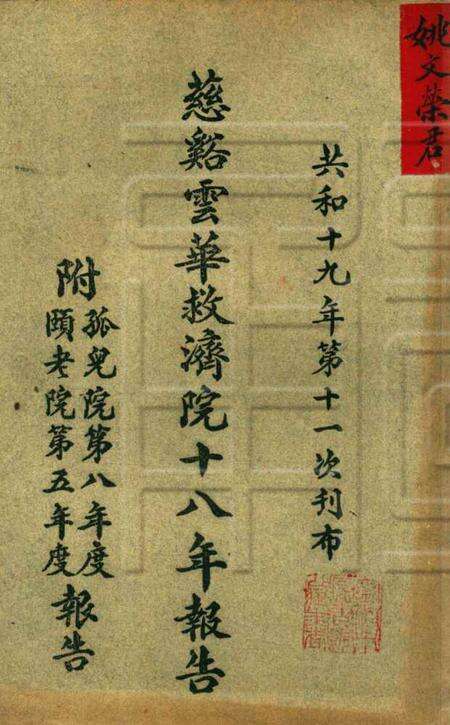 姚文榮君
共和十九年第十一次刊布
慈谿雲華救濟院十八年報告
附孤兒院第八年度
頤老院第五年度報告